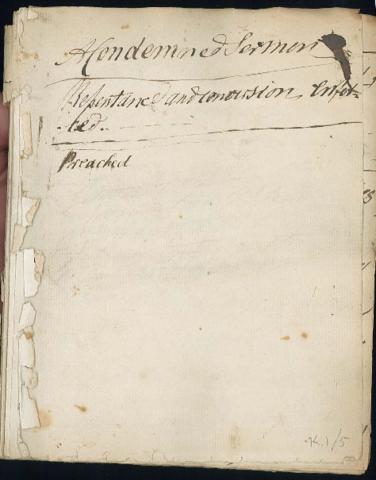 A Condemned Sermon
Repentance and conversion Infor-
ced.
Preached
K.1/5